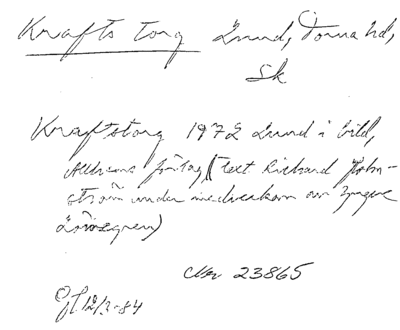 Krafts torg Lund, Torna hd,
Sk
Kraftstorg 1972 Lund i bild,
Allhems förlag (text Richard Holm-
ström under medverkan av Yngve
Lövegren)
Nr 23865
12/3-84